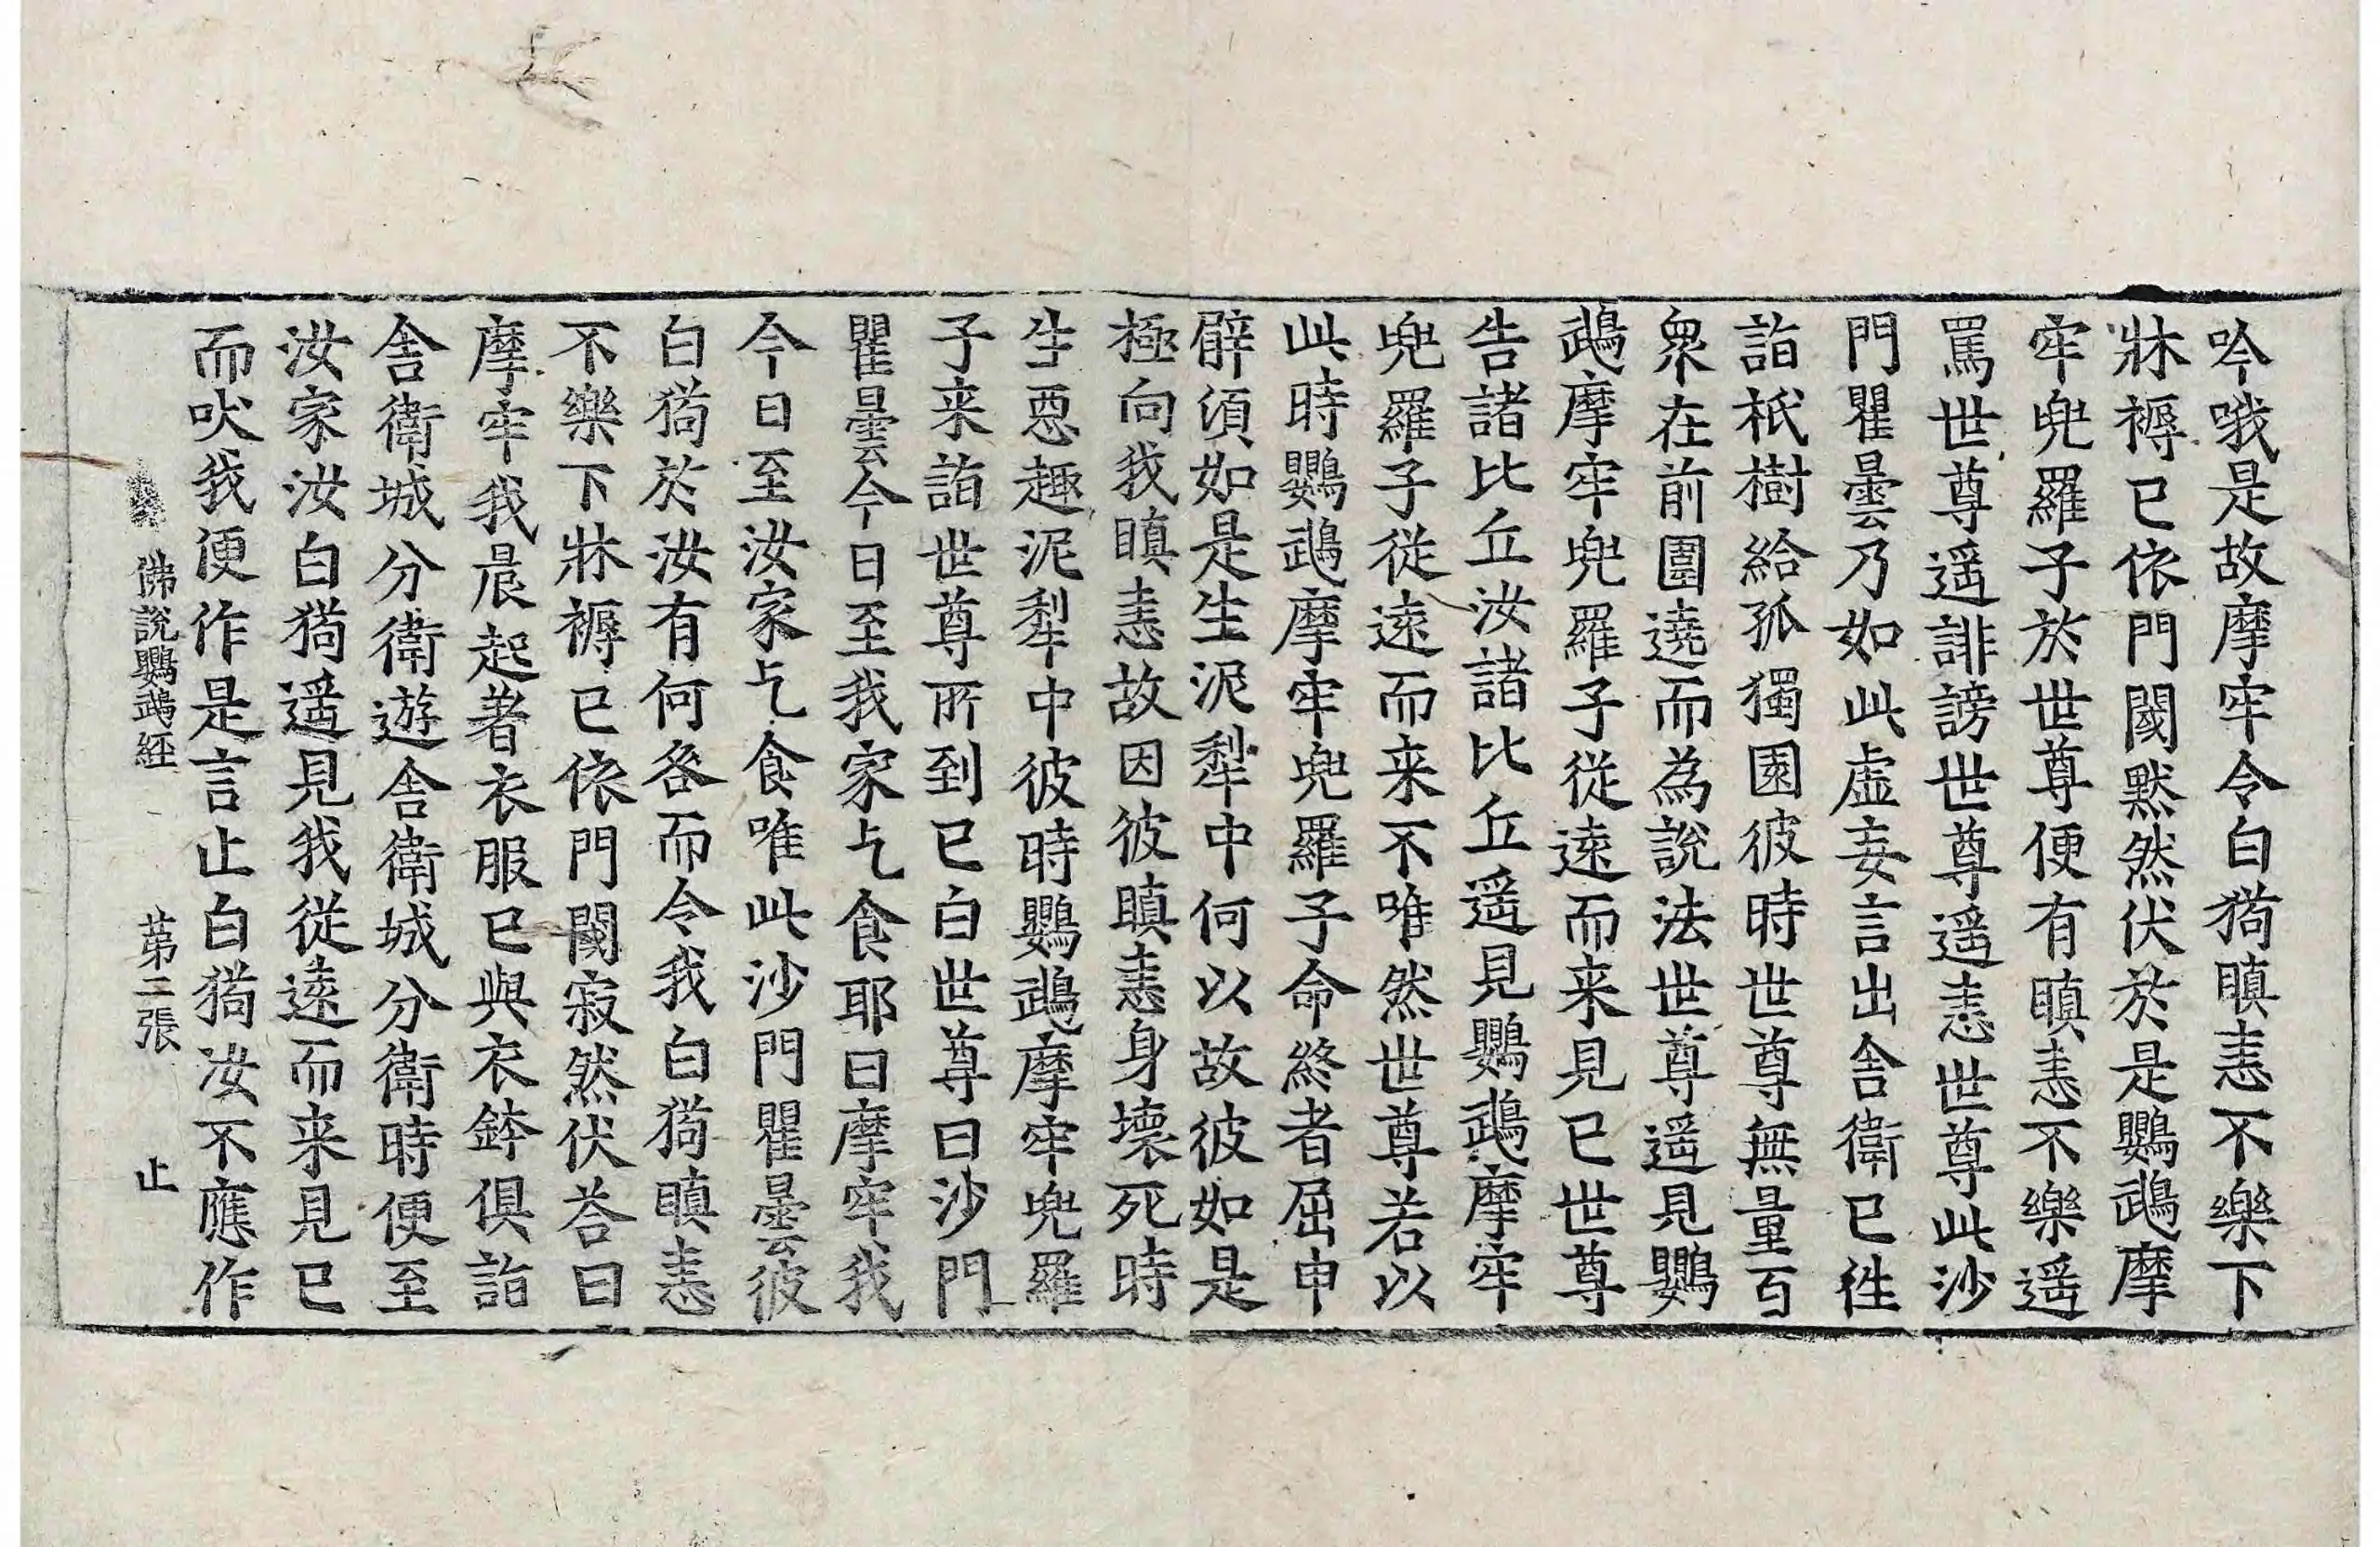 吟哦是故摩牢令白狗瞋恚不樂下
牀褥已依門閾默然伏於是鸚鵡摩
牢兜羅子於世尊便有瞋恚不樂遥
罵世尊遥誹謗世尊遥恚世尊此沙
門瞿曇乃如此虛妄言出舍衛已徃
詣祇樹給孤獨園彼時世尊無量百
衆在前圍遶而為說法世尊遥見鸚
鵡摩牢兜羅子從遠而来見已世尊
告諸比丘汝諸比丘遥見鸚鵡摩牢
兜羅子從遠而来不唯然世尊若以
此時鸚鵡摩牢兜羅子命終者屈申
臂湏如是生泥犁中何以故彼如是
極向我瞋恚故因彼瞋恚身壞死時
生惡趣泥犁中彼時鸚鵡摩牢兜羅
子来詣世尊所到已白世尊曰沙門
瞿曇今日至我家乞食耶曰摩牢我
今日至汝家乞食唯此沙門瞿曇彼
白狗於汝有何咎而令我白狗瞋恚
不樂下牀褥已依門閾寂然伏荅曰
摩牢我晨起著衣服已與衣鉢俱詣
舍衛城分衛遊舍衛城分衛時便至
汝家汝白狗遥見我從遠而来見已
而吠我便作是言止白狗汝不應作
佛說鸚鵡經 第二張 止